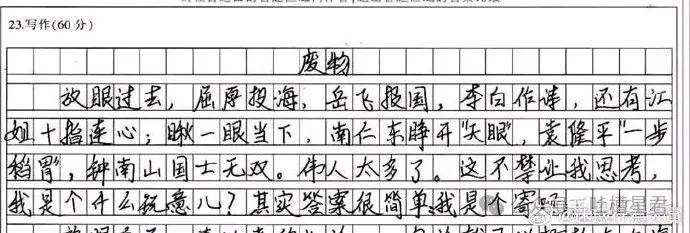 23.写作(60分)
废物
放眼过去，屈原投海，岳飞报国，李白作诗，还有江
姐十指连心；瞅一眼当下，南仁东睁开“天眼”，袁隆平“一步
稻胃”，钟南山国士无双。伟人太多了。这不禁让我思考，
我是个什么玩意儿？其实答案很简单：我是个寄吧
吐槽星君